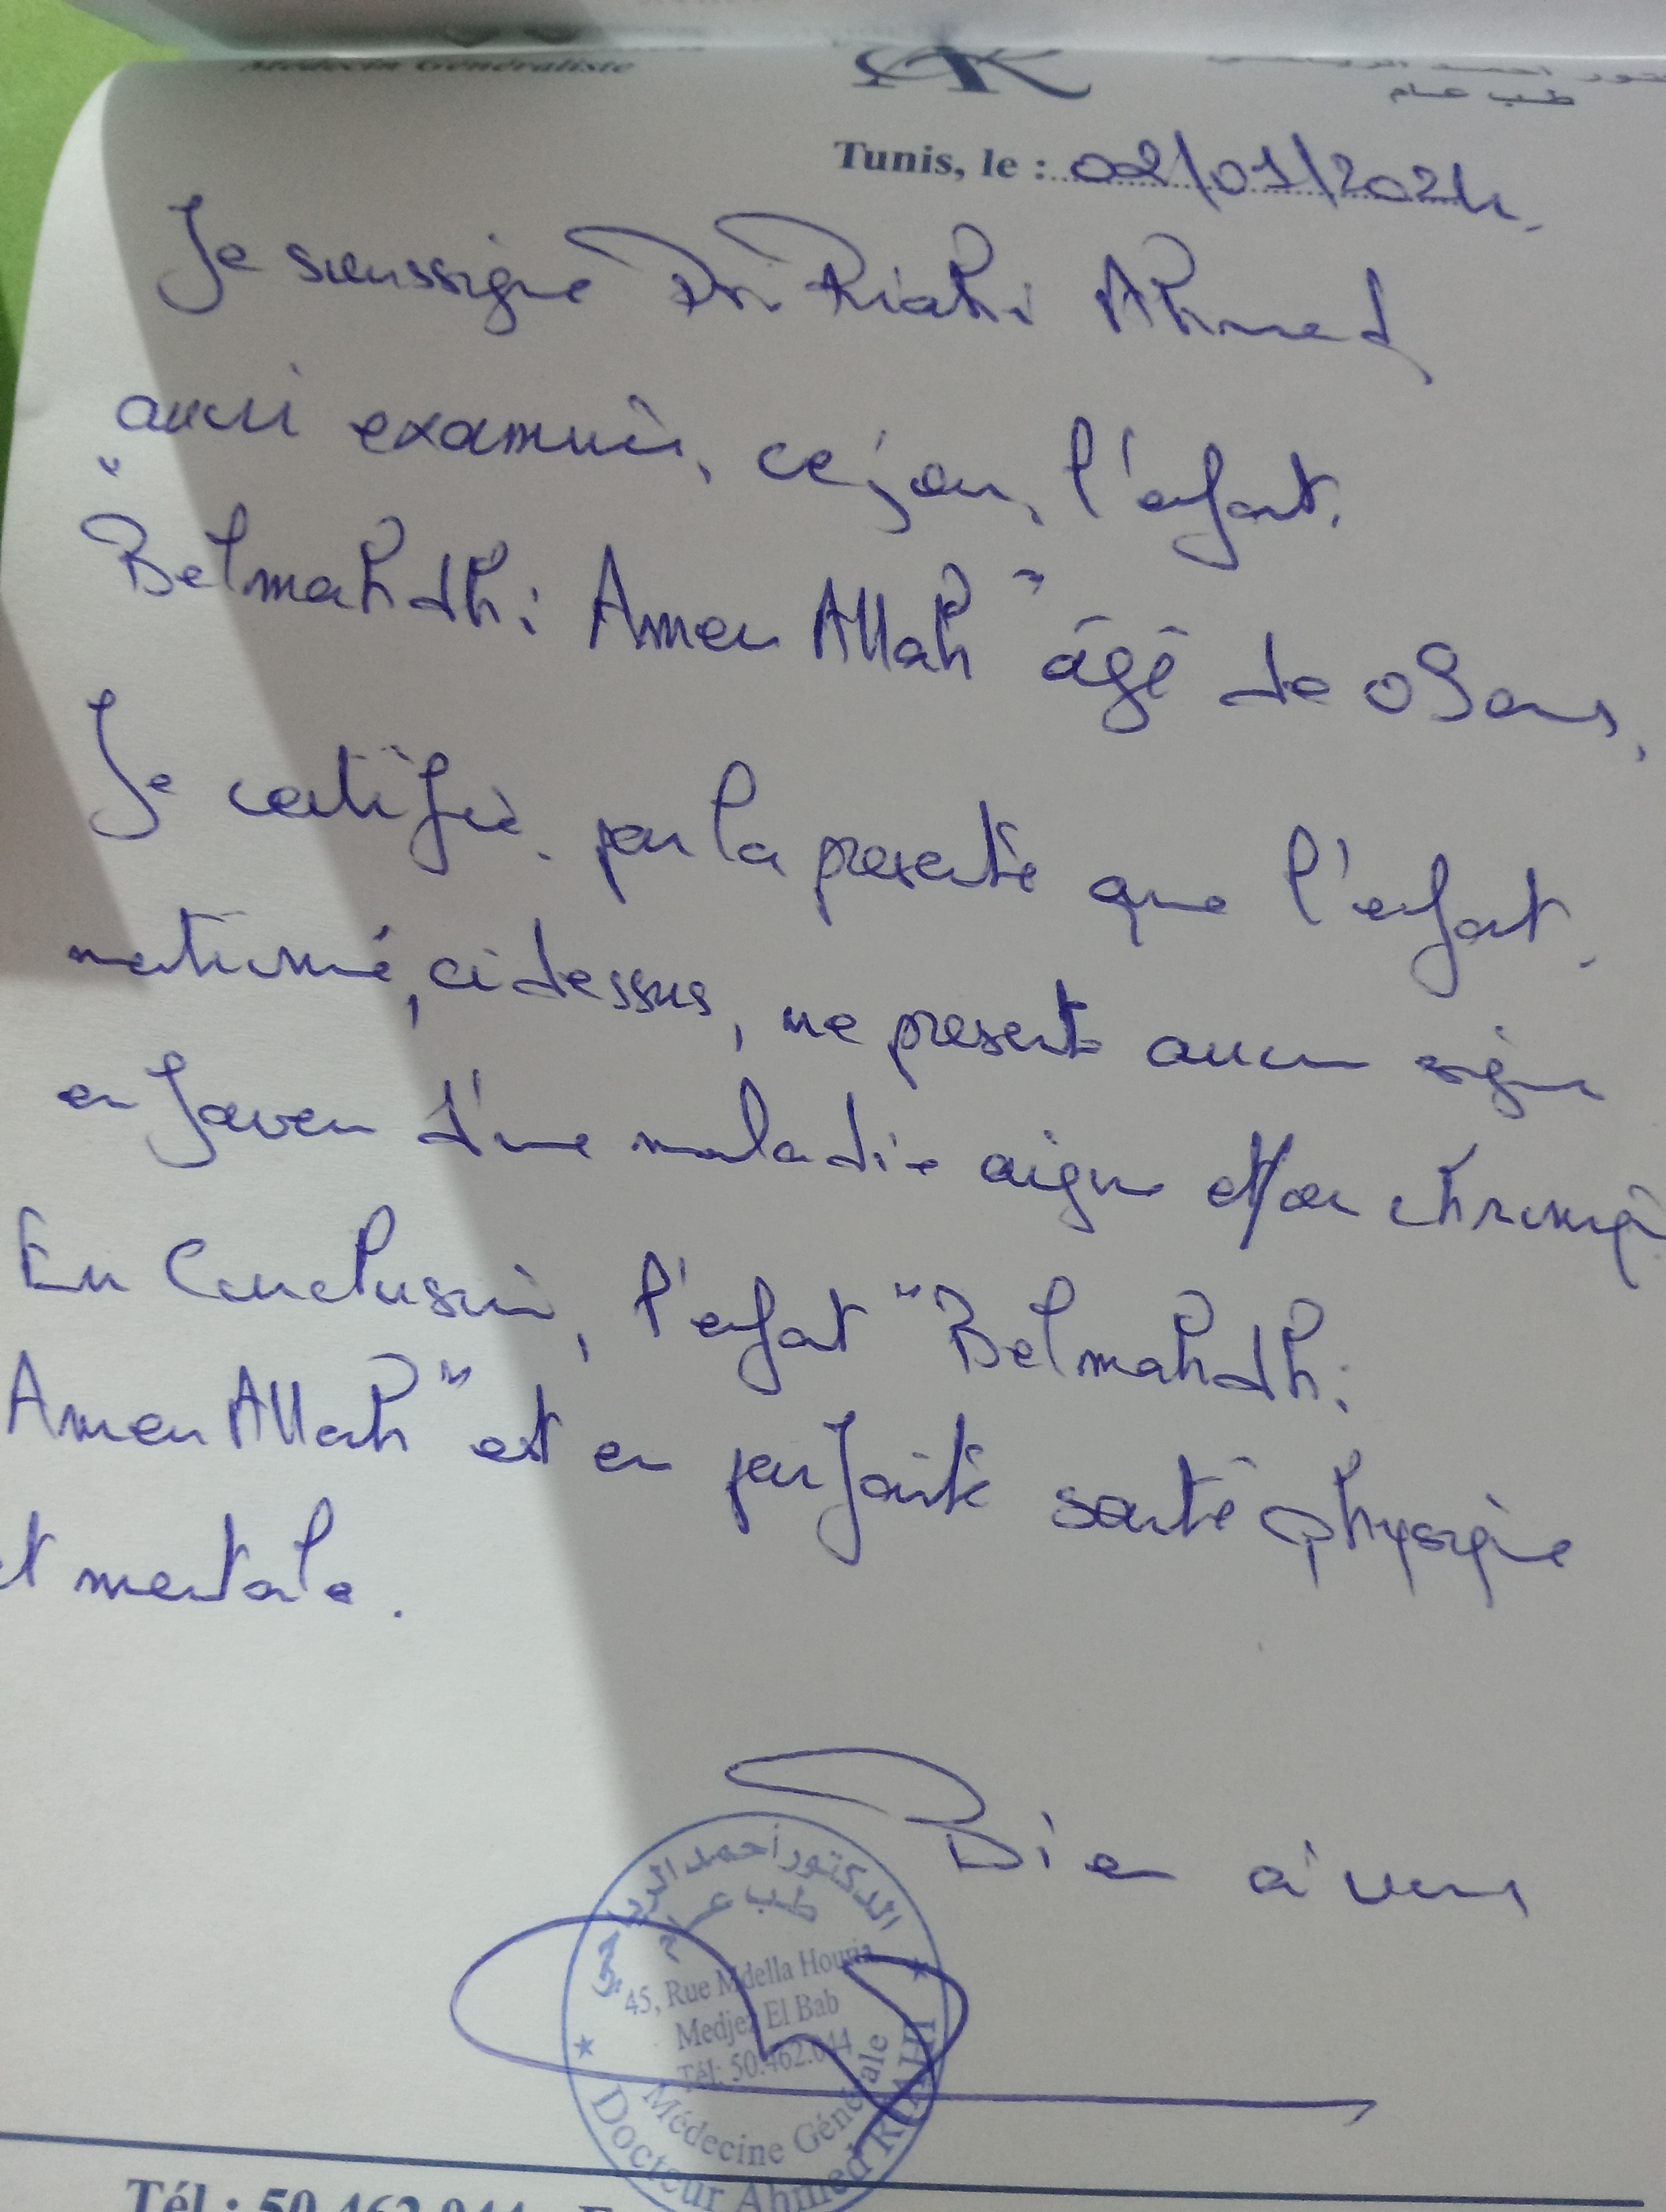 Médecin Généraliste
طب عام
Tunis, le : 02/01/2024
Je soussigné Dr Riahi Ahmed
avoir examiné, ce jour, l'enfant.
"Belmahdhi Amen Allah" âgé de 09 ans,
Je certifie par la présente que l'enfant.
mentionné, ci dessus, ne présente aucun signe
en faveur d'une maladie aigue et/ou chronique
En Conclusion, l'enfant "Belmahdhi
Amen Allah" est en parfaite santé physique
et mentale.
Bien à vous
الدكتور أحمد الرياحي
طب عام
45, Rue Mdella Houria
Medjez El Bab
Tél: 50.462.044
Médecine Générale
Docteur Ahmed RIAHI
Tél : 50 462 044